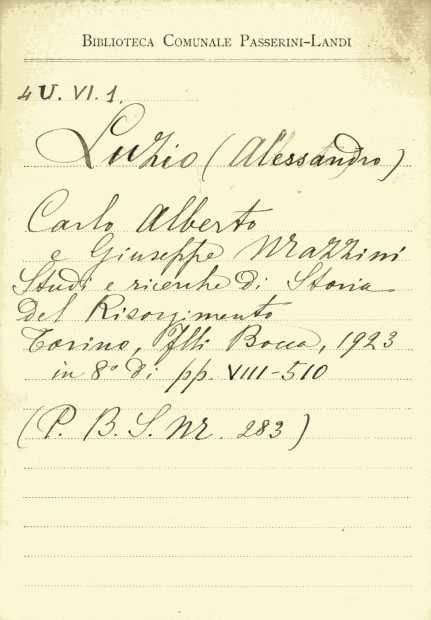 BIBLIOTECA COMUNALE PASSERINI-LANDI
4 U. VI. 1.
Luzio (Alessandro)
Carlo Alberto
e Giuseppe Mazzini
Studi e ricerche di Storia
del Risorgimento
Torino, Flli Bocca, 1923
in 8° di pp. VIII-510
(P. B. S. Nr. 283)